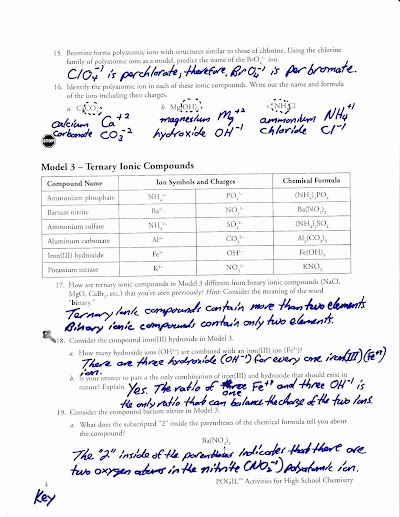 15. Bromine forms polyatomic ions with structures similar to those of chlorine. Using the chlorine
family of polyatomic ions as a model, predict the name of the BrO₄¹⁻ ion.
ClO₄⁻¹ is perchlorate, therefore, BrO₄⁻¹ is perbromate.
16. Identify the polyatomic ion in each of these ionic compounds. Write out the name and formula
of the ions including their charges.
a. CaCO₃ b. Mg(OH)₂ c. NH₄Cl
calcium Ca⁺² magnesium Mg⁺² ammonium NH₄⁺¹
carbonate CO₃⁻² hydroxide OH⁻¹ chloride Cl⁻¹
STOP
Model 3 – Ternary Ionic Compounds
Compound Name Ion Symbols and Charges Chemical Formula
Ammonium phosphate NH₄¹⁺ PO₄³⁻ (NH₄)₃PO₄
Barium nitrite Ba²⁺ NO₂¹⁻ Ba(NO₂)₂
Ammonium sulfate NH₄¹⁺ SO₄²⁻ (NH₄)₂SO₄
Aluminum carbonate Al³⁺ CO₃²⁻ Al₂(CO₃)₃
Iron(III) hydroxide Fe³⁺ OH¹⁻ Fe(OH)₃
Potassium nitrate K¹⁺ NO₃¹⁻ KNO₃
17. How are ternary ionic compounds in Model 3 different from binary ionic compounds (NaCl,
MgO, CaBr₂, etc.) that you've seen previously? Hint: Consider the meaning of the word
"binary."
Ternary ionic compounds contain more than two elements
Binary ionic compounds contain only two elements.
18. Consider the compound iron(III) hydroxide in Model 3.
a. How many hydroxide ions (OH¹⁻) are combined with an iron(III) ion (Fe³⁺)?
There are three hydroxide (OH⁻¹) for every one iron(III) (Fe⁺³)
ion.
b. Is your answer to part a the only combination of iron(III) and hydroxide that should exist in
nature? Explain. Yes. The ratio of one Fe⁺³ and three OH⁻¹ is
the only ratio that can balance the charge of the two ions.
19. Consider the compound barium nitrite in Model 3.
a. What does the subscripted "2" inside the parentheses of the chemical formula tell you about
the compound?
Ba(NO₂)₂
The "2" inside of the parenthesis indicates that there are
two oxygen atoms in the nitrite (NO₂⁻¹) polyatomic ion.
4 POGIL™ Activities for High School Chemistry
Key